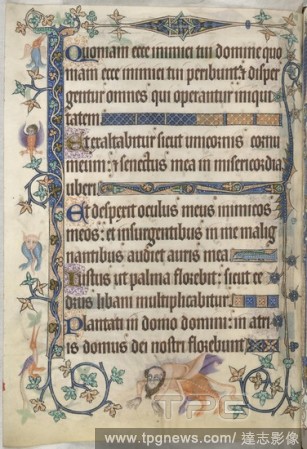 Quoniam ecce inimici tui domine quo
niam ecce inimici tui peribunt: ⁊ disper
gentur omnes qui operantur iniqui
tatem
Et exaltabitur sicut unicornis cornu
meum: ⁊ senectus mea in misericordia
uberi
Et despexit oculus meus inimicos
meos: et insurgentibus in me malig
nantibus audiet auris mea
Iustus ut palma florebit: sicut ce
drus libani multiplicabitur
Plantati in domo domini: in atri
is domus dei nostri florebunt
TPG
www.tpgnews.com/ 達志影像